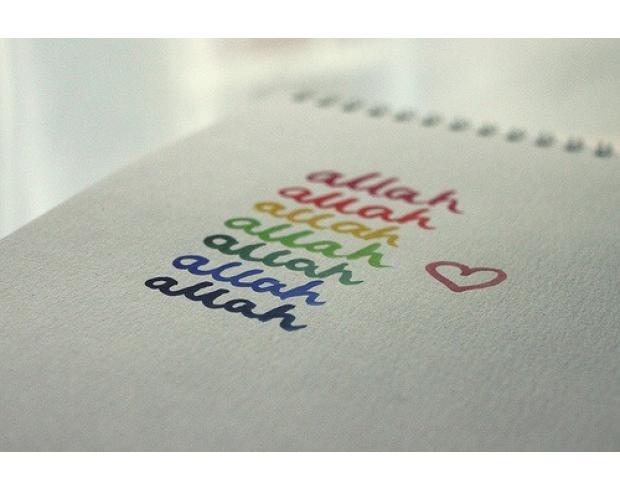 allah
allah
allah
allah
allah
allah
allah